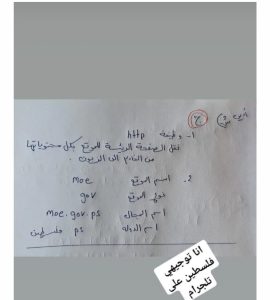 أيمن
ج
1- وظيفة http
نقل الصفحة الرئيسة للموقع بكل محتوياتها
من الخادم الى الزبون.
2- اسم الموقع moe
نوع الموقع gov
اسم المجال moe.gov.ps
اسم الدولة ps فلسطين
انا توجيهي
فلسطين على
تلجرام